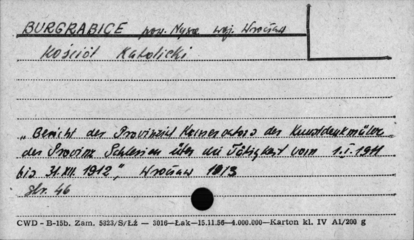 BURGRABICE pow. Nysa woj. Wrocław
Kościół Katolicki
„Bericht des Provinzial Konservators der Kunstdenkmäler
der Provinz Schlesien über die Tätigkeit vom 1.I.1911
bis 31.XII.1912", Wrocław 1913
str. 46
CWD - B-15b. Zam. 5823/S/Łż — 3016—Łak—15.11.56—4.000.000—Karton kl. IV A1/200 g